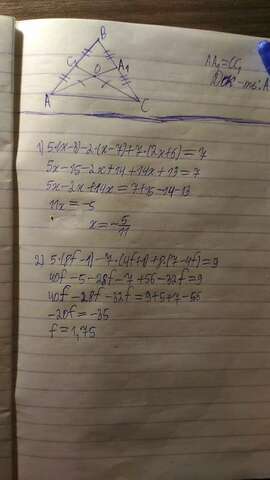 B
C₁ O A₁
A C
AA₁=CC₁
Док-ть: A
1) 5·(x-3)-2·(x-7)+7·(2x+6)=7
5x-15-2x+14+14x+13=7
5x-2x+14x=7+15-14-13
17x=-5
x=-5/17
2) 5·(8f-1)-7·(4f+1)+8·(7-4f)=9
40f-5-28f-7+56-32f=9
40f-28f-32f=9+5+7-56
-20f=-35
f=1,75